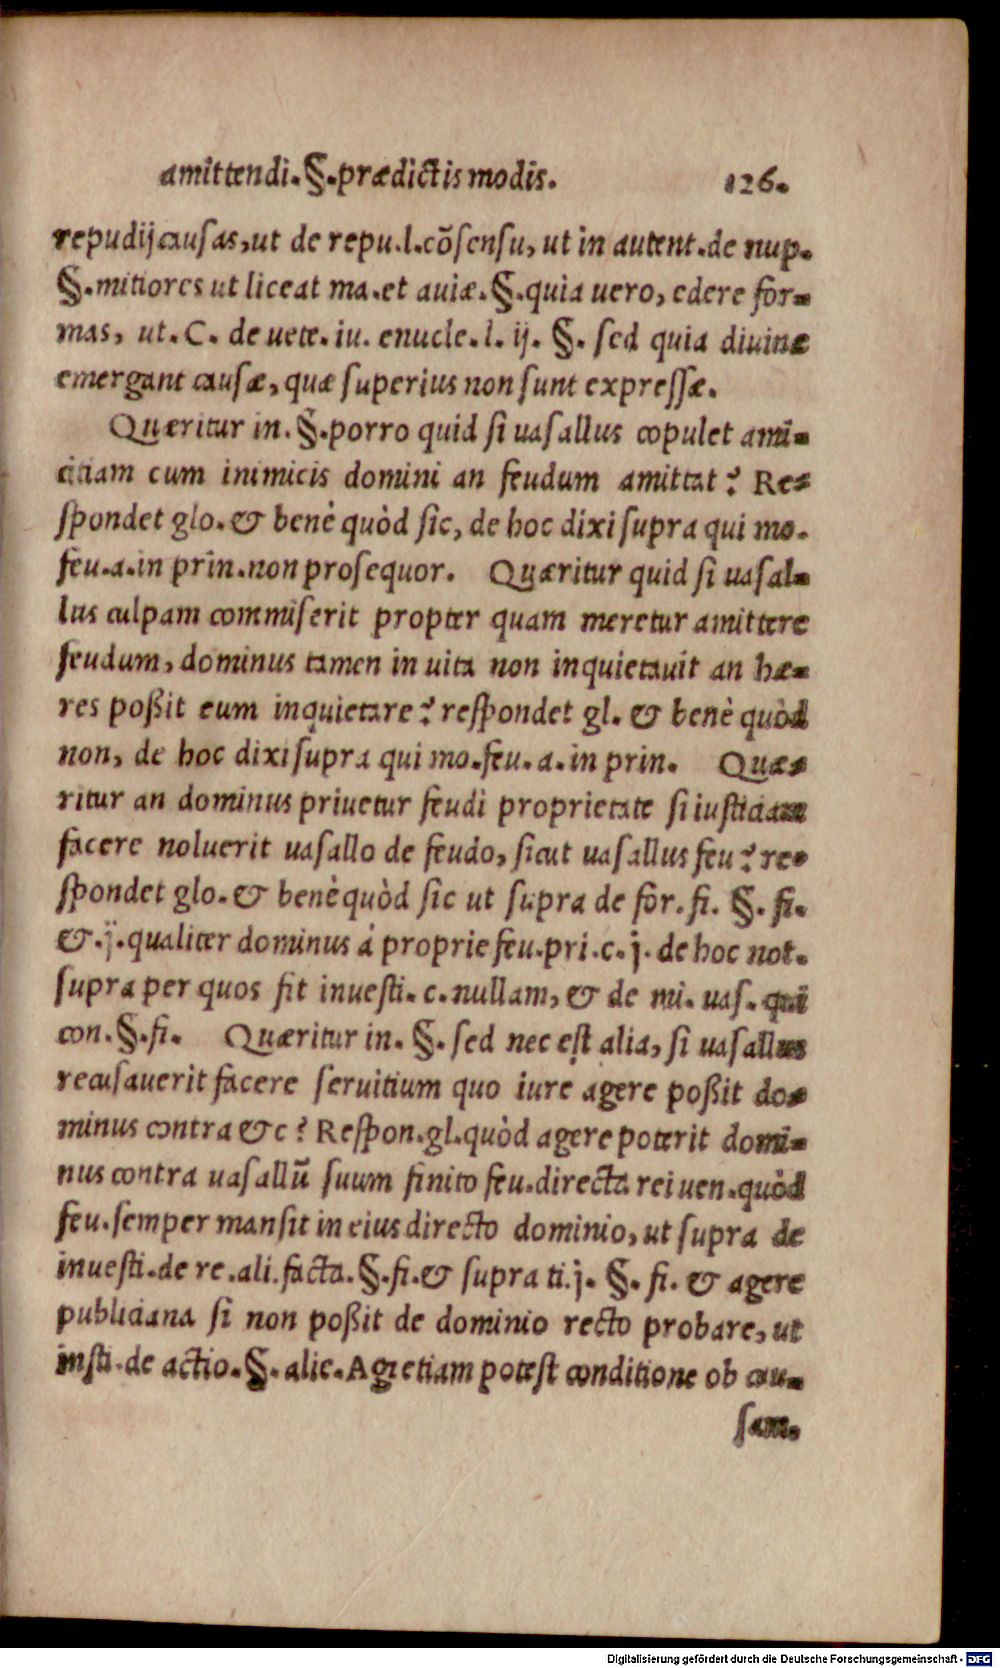 amittendi.§.prædictis modis. 126.
repudij causas, ut de repu.l.cõsensu, ut in autent.de nup.
§.mitiores ut liceat ma.et auiæ.§.quia uero, edere for-
mas, ut. C. de uete. iu. enucle. l. ij. §. sed quia diuinæ
emergant causæ, quæ superius non sunt expressæ.
Quæritur in. §.porro quid si uasallus copulet ami-
citiam cum inimicis domini an feudum amittat? Re-
spondet glo. & benè quòd sic, de hoc dixi supra qui mo.
feu.a.in prin.non prosequor. Quæritur quid si uasal-
lus culpam commiserit propter quam meretur amittere
feudum, dominus tamen in uita non inquietauit an hæ-
res poßit eum inquietare? respondet gl. & benè quòd
non, de hoc dixi supra qui mo.feu.a.in prin. Quæ-
ritur an dominus priuetur feudi proprietate si iusticiam
facere noluerit uasallo de feudo, sicut uasallus feu? re-
spondet glo. & benè quòd sic ut supra de for. fi. §. fi.
&.j.qualiter dominus á proprie feu.pri.c.j. de hoc not.
supra per quos fit inuesti. c. nullam, & de mi. uas. qui
con. §. fi. Quæritur in. §. sed nec est alia, si uasallus
recusauerit facere seruitium quo iure agere poßit do-
minus contra &c? Respon.gl.quòd agere poterit domi-
nus contra uasallũ suum finito feu.directa rei uen.quòd
feu.semper mansit in eius directo dominio, ut supra de
inuesti.de re.ali.facta.§.fi.& supra ti.j. §. fi. & agere
publiciana si non poßit de dominio recto probare, ut
insti.de actio.§.alie.Agi etiam potest conditione ob cau-
sam.
Digitalisierung gefördert durch die Deutsche Forschungsgemeinschaft - DFG